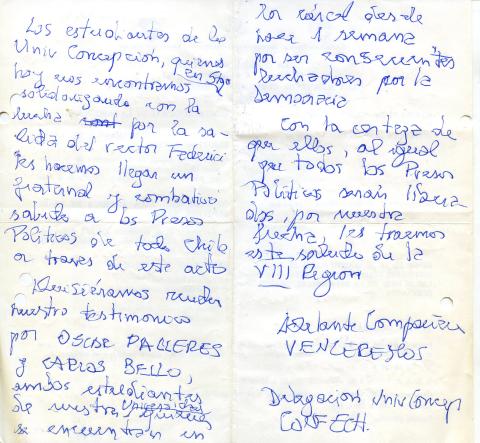 Los estudiantes de la
Univ Concepción, quienes
hoy nos encontramos en Stgo
solidarizando con la
lucha por la sa-
lida del rector Federici
les hacemos llegar un
fraternal y combativo
saludo a los Presos
Políticos de todo Chile
a traves de este acto
Quisiéramos rendir
nuestro testimonio
por OSCAR PALLERES
y CARLOS BELLO,
ambos estudiantes
de nuestra Universidad
se encuentran en
la cárcel desde
hace 1 semana
por ser consecuentes
luchadores por la
Democracia
Con la certeza de
que ellos, al igual
que todos los Presos
Políticos serán libera
dos, por nuestra
lucha, les traemos
este saludo de la
VIII Region
Adelante Compañeros
VENCEREMOS
Delegacion Univ Concep
CONFECH.